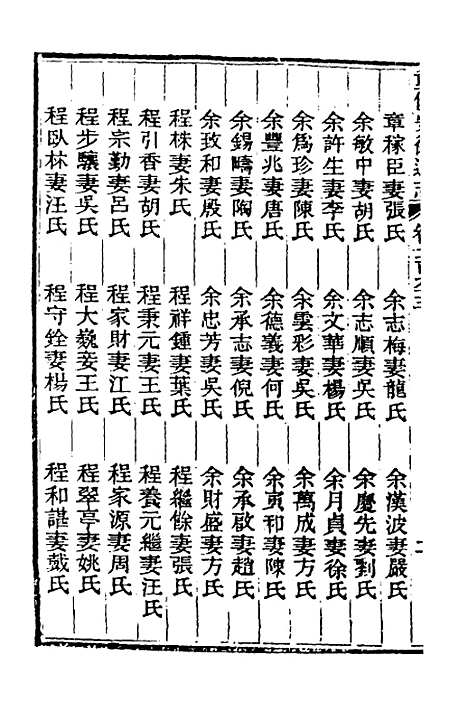 章稼臣妻張氏　余志梅妻龍氏　余漢波妻嚴氏
余敏中妻胡氏　余志順妻吳氏　余慶先妻劉氏
余許生妻李氏　余文華妻楊氏　余月貞妻徐氏
余爲珍妻陳氏　余雲彩妻吳氏　余萬成妻方氏
余豐兆妻唐氏　余德義妻何氏　余寅卭妻陳氏
余錫疇妻陶氏　余承志妻倪氏　余承啟妻趙氏
余致和妻殷氏　余忠芳妻吳氏　余財盛妻方氏
程株妻朱氏　程祥鍾妻葉氏　程繼餘妻張氏
程引香妻胡氏　程秉元妻王氏　程養元繼妻汪氏
程宗勤妻呂氏　程家財妻江氏　程家源妻周氏
程步驤妻吳氏　程大巍妾王氏　程翠亭妻姚氏
程臥林妻汪氏　程守銓妻楊氏　程和諶妻戴氏